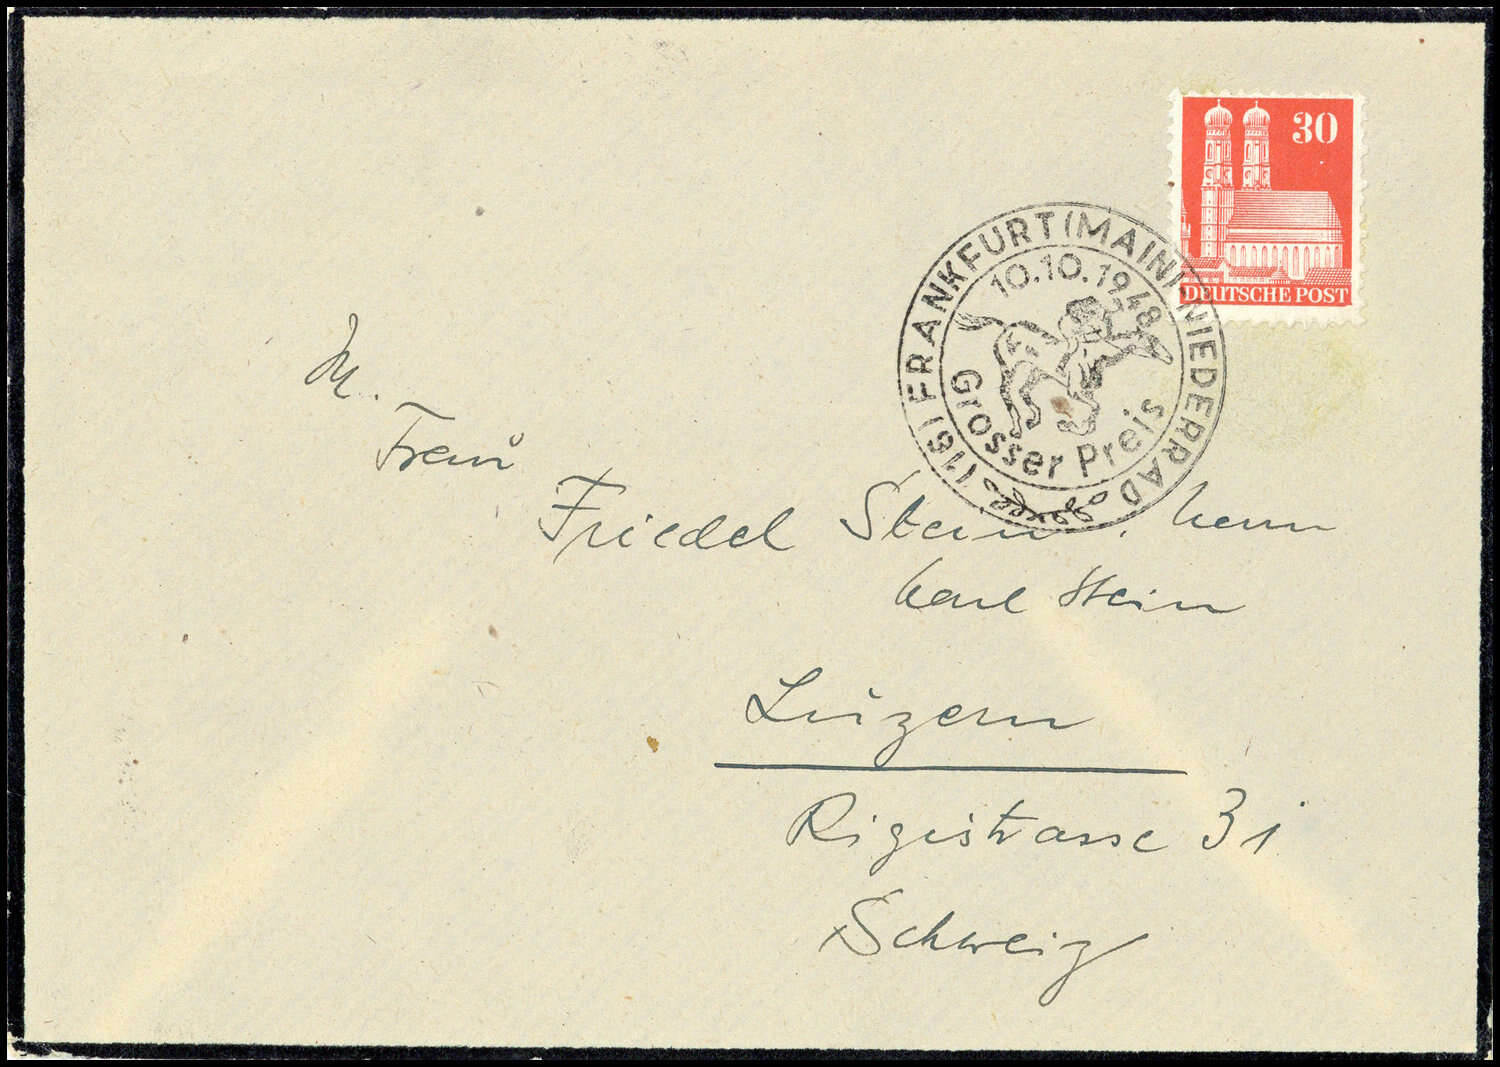 30
DEUTSCHE POST
(16) FRANKFURT (MAIN)-NIEDERRAD
10.10.1948
Grosser Preis
Friedel Stein,
Karl Stein
Luzern
Rigistrasse 31
Schweiz